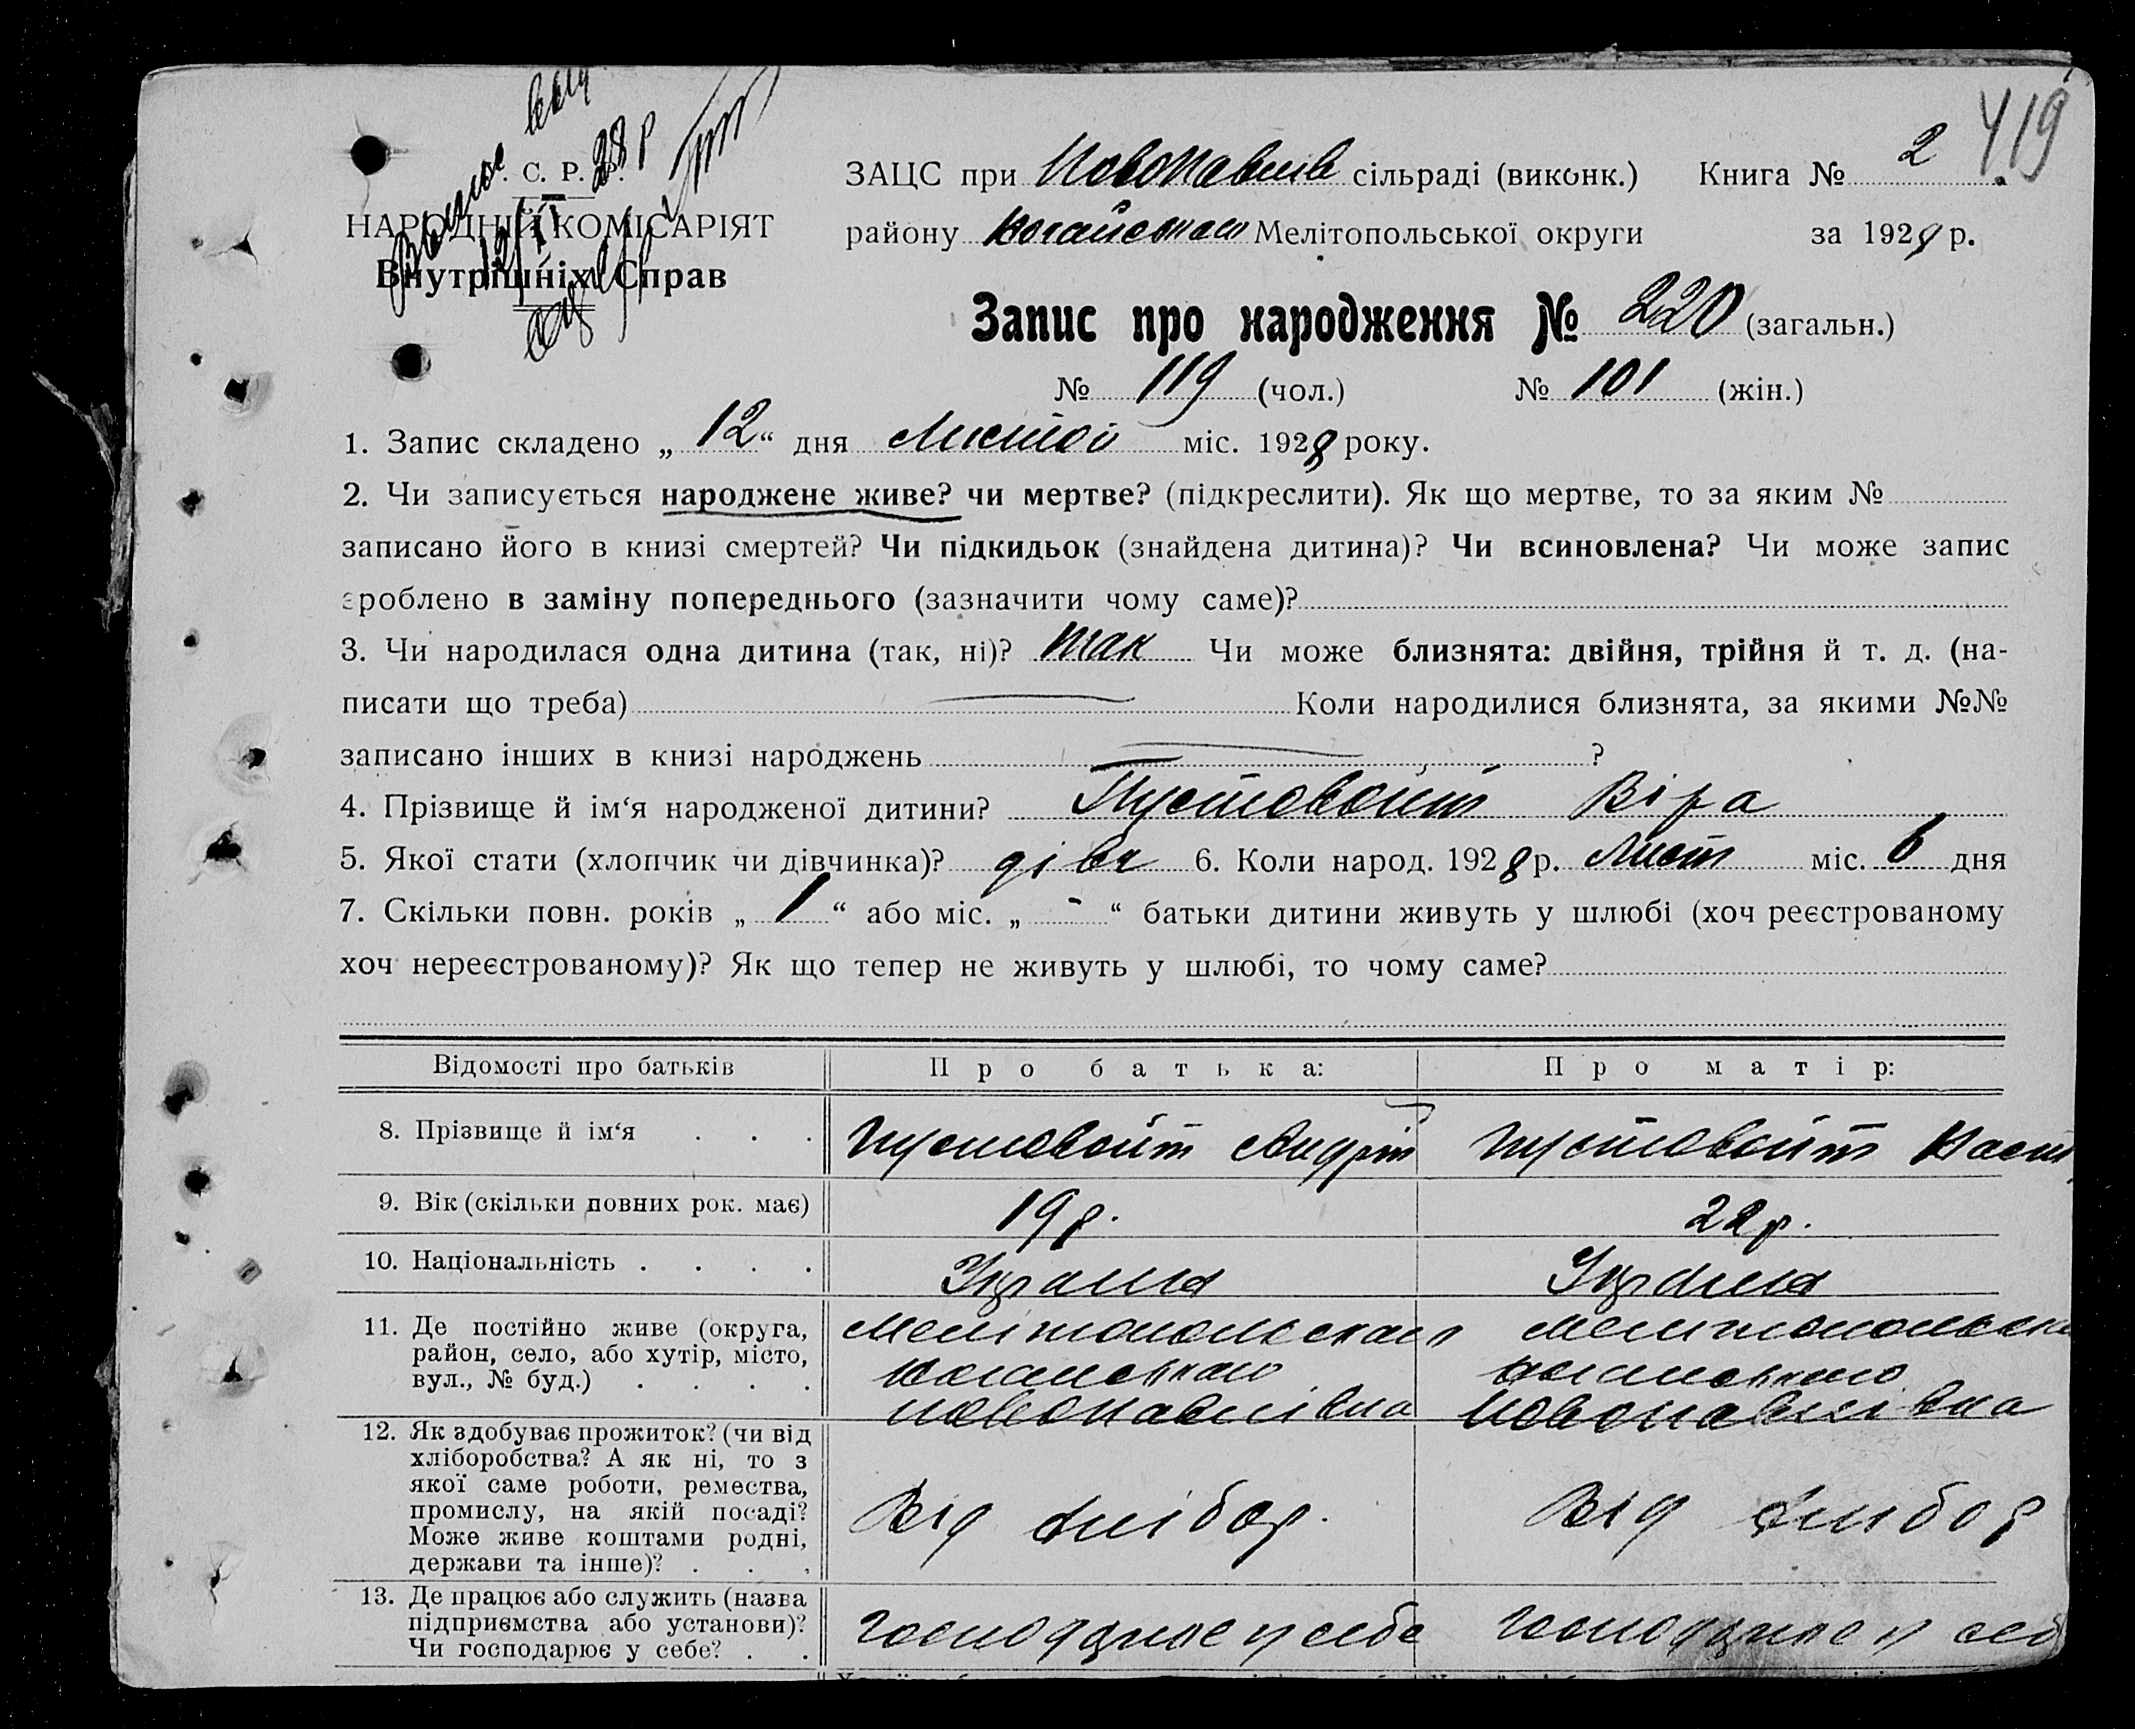 419
. С. Р. Р.
28 р
НАРОДНІЙ КОМІСАРІЯТ
Внутрішніх Справ
ЗАЦС при Новопавлів сільраді (виконк.) Книга № 2
району Ногайськ Мелітопольської округи за 1928 р.
Запис про народження № 220 (загальн.)
№ 119 (чол.) № 101 (жін.)
1. Запис складено „ 12 “ дня Листоп міс. 1928 року.
2. Чи записується народжене живе? чи мертве? (підкреслити). Як що мертве, то за яким №
записано його в книзі смертей? Чи підкидьок (знайдена дитина)? Чи всиновлена? Чи може запис
зроблено в заміну попереднього (зазначити чому саме)?
3. Чи народилася одна дитина (так, ні)? так Чи може близнята: двійня, трійня й т. д. (на-
писати що треба) — Коли народилися близнята, за якими №№
записано інших в книзі народжень — ?
4. Прізвище й ім‘я народженої дитини? Пустовойт Віра
5. Якої стати (хлопчик чи дівчинка)? дівч 6. Коли народ. 1928 р. Лист міс. 6 дня
7. Скільки повн. років „ 1 “ або міс. „ - “ батьки дитини живуть у шлюбі (хоч реєстрованому
хоч нереєстрованому)? Як що тепер не живуть у шлюбі, то чому саме?
Відомості про батьків Про батька: Про матір:
8. Прізвище й ім‘я . . . Пустовойт Андрій Пустовойт Наст
9. Вік (скільки повних рок. має) 19 р. 22 р.
10. Національність . . . . Україн Україн
11. Де постійно живе (округа, Мелітопольская Мелітопольска
район, село, або хутір, місто, Ногайського Ногайського
вул., № буд.) . . . . Новопавлівка Новопавлівка
12. Як здобуває прожиток? (чи від
хліборобства? А як ні, то з
якої саме роботи, ремества,
промислу, на якій посаді? Від хлібор. Від хлібор
Може живе коштами родні,
держави та інше)? . . .
13. Де працює або служить (назва
підприємства або установи)? господарює у себе господарює у себ
Чи господарює у себе? . .